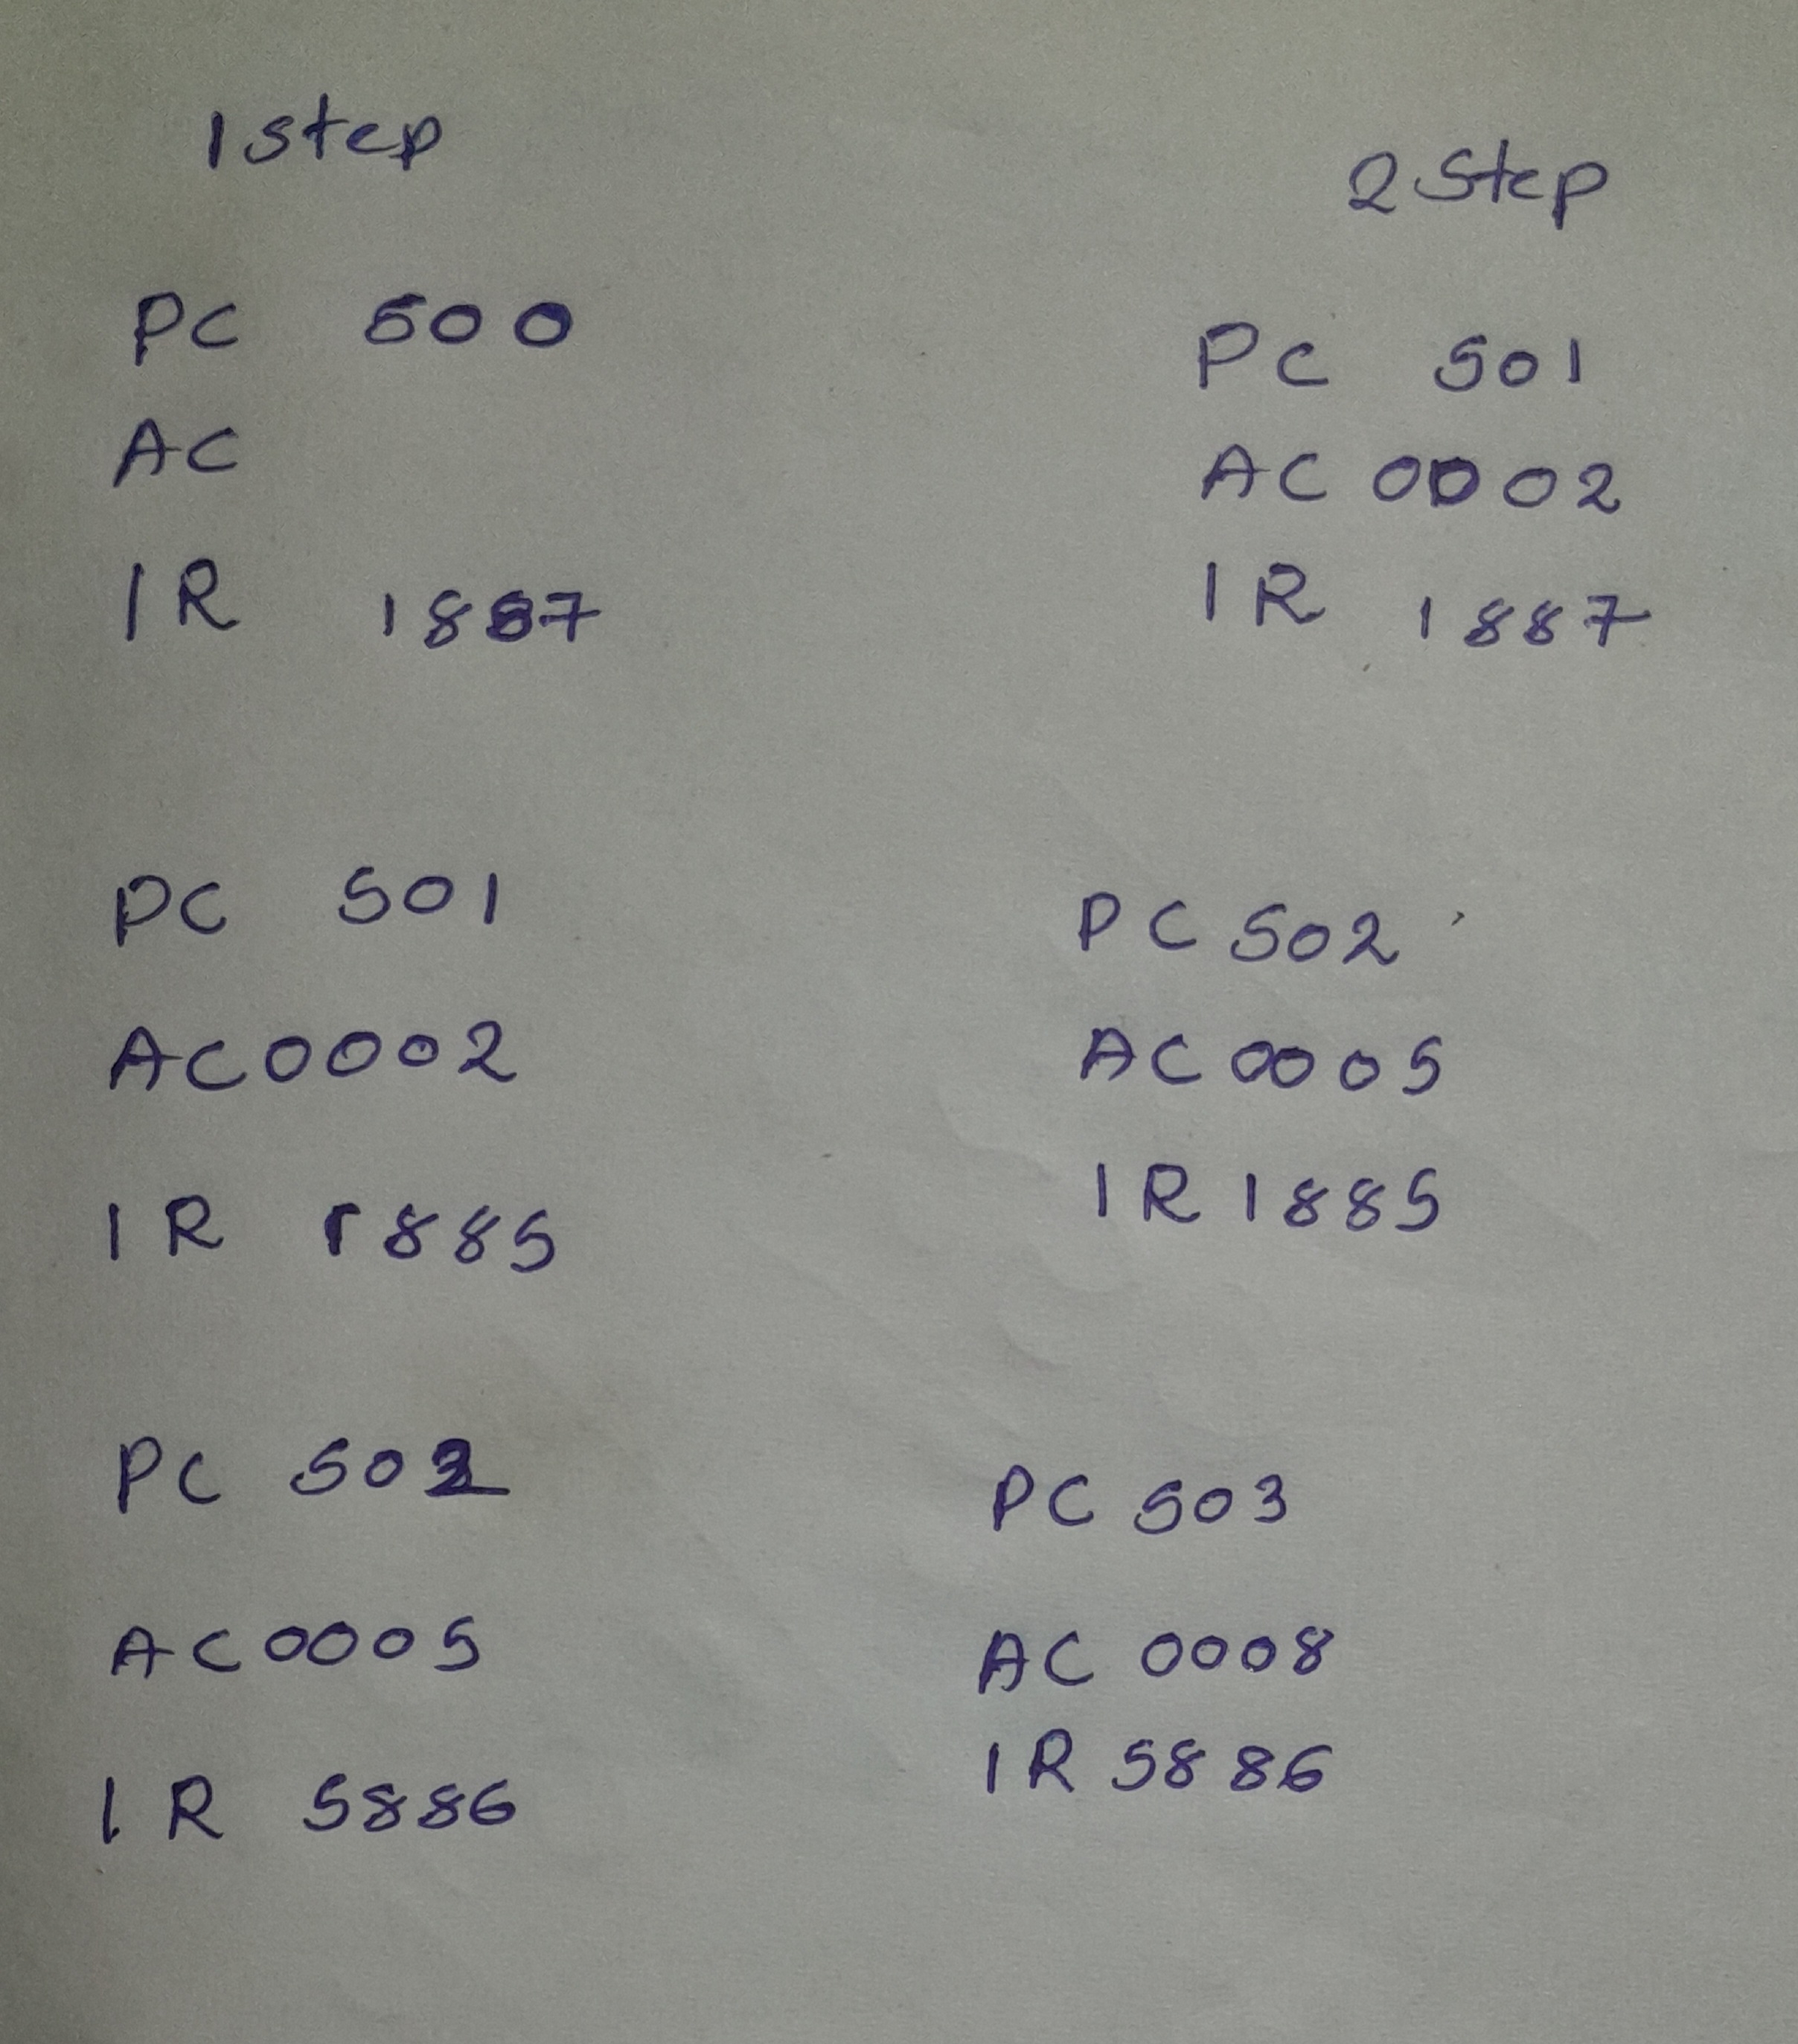 1 step
PC 500
AC
IR 1887
2 Step
PC 501
AC 0002
IR 1887
PC 501
AC 0002
IR 1885
PC 502
AC 0005
IR 1885
PC 502
AC 0005
IR 5886
PC 503
AC 0008
IR 5886